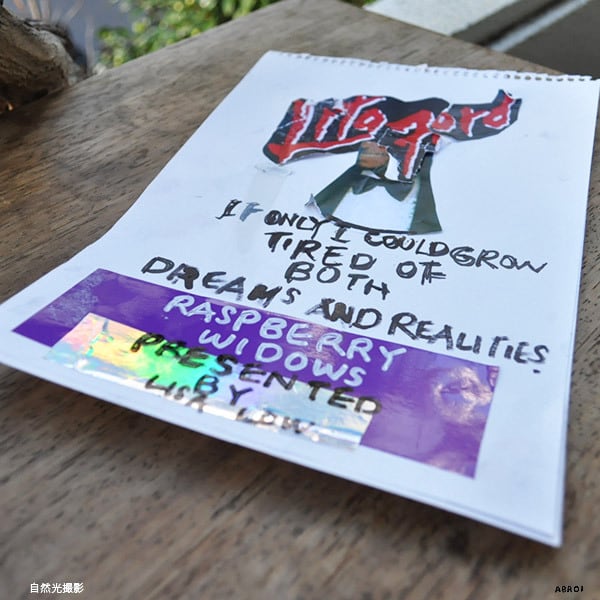 Lita Ford
IF ONLY I COULD GROW
TIRED OF
BOTH
DREAMS AND REALITIES.
RASPBERRY
WIDOWS
PRESENTED
BY
LISA LAW.
自然光撮影
ABRO1